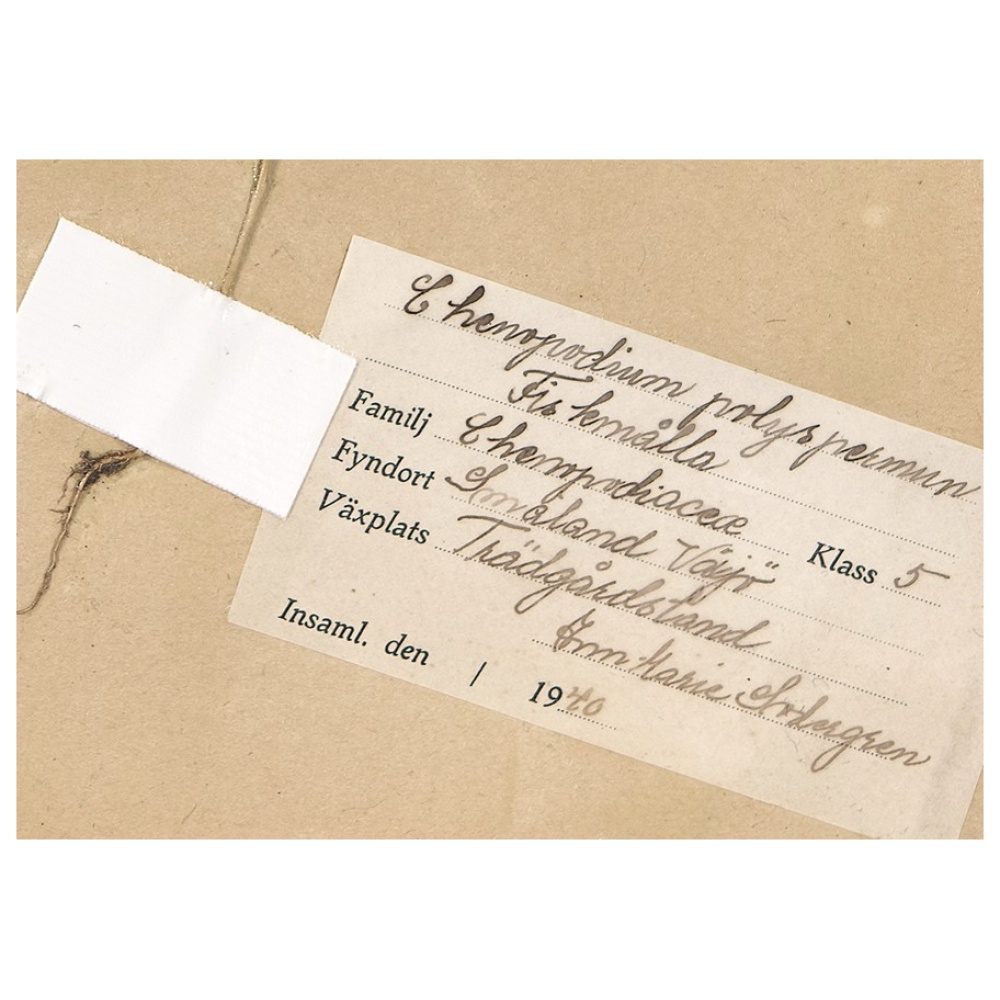 Chenopodium polyspermum
Fiskmålla
Familj Chenopodiaceæ Klass 5
Fyndort Småland Växjö
Växplats Trädgårdsland
Insaml. den / 1940 Ann Marie Södergren